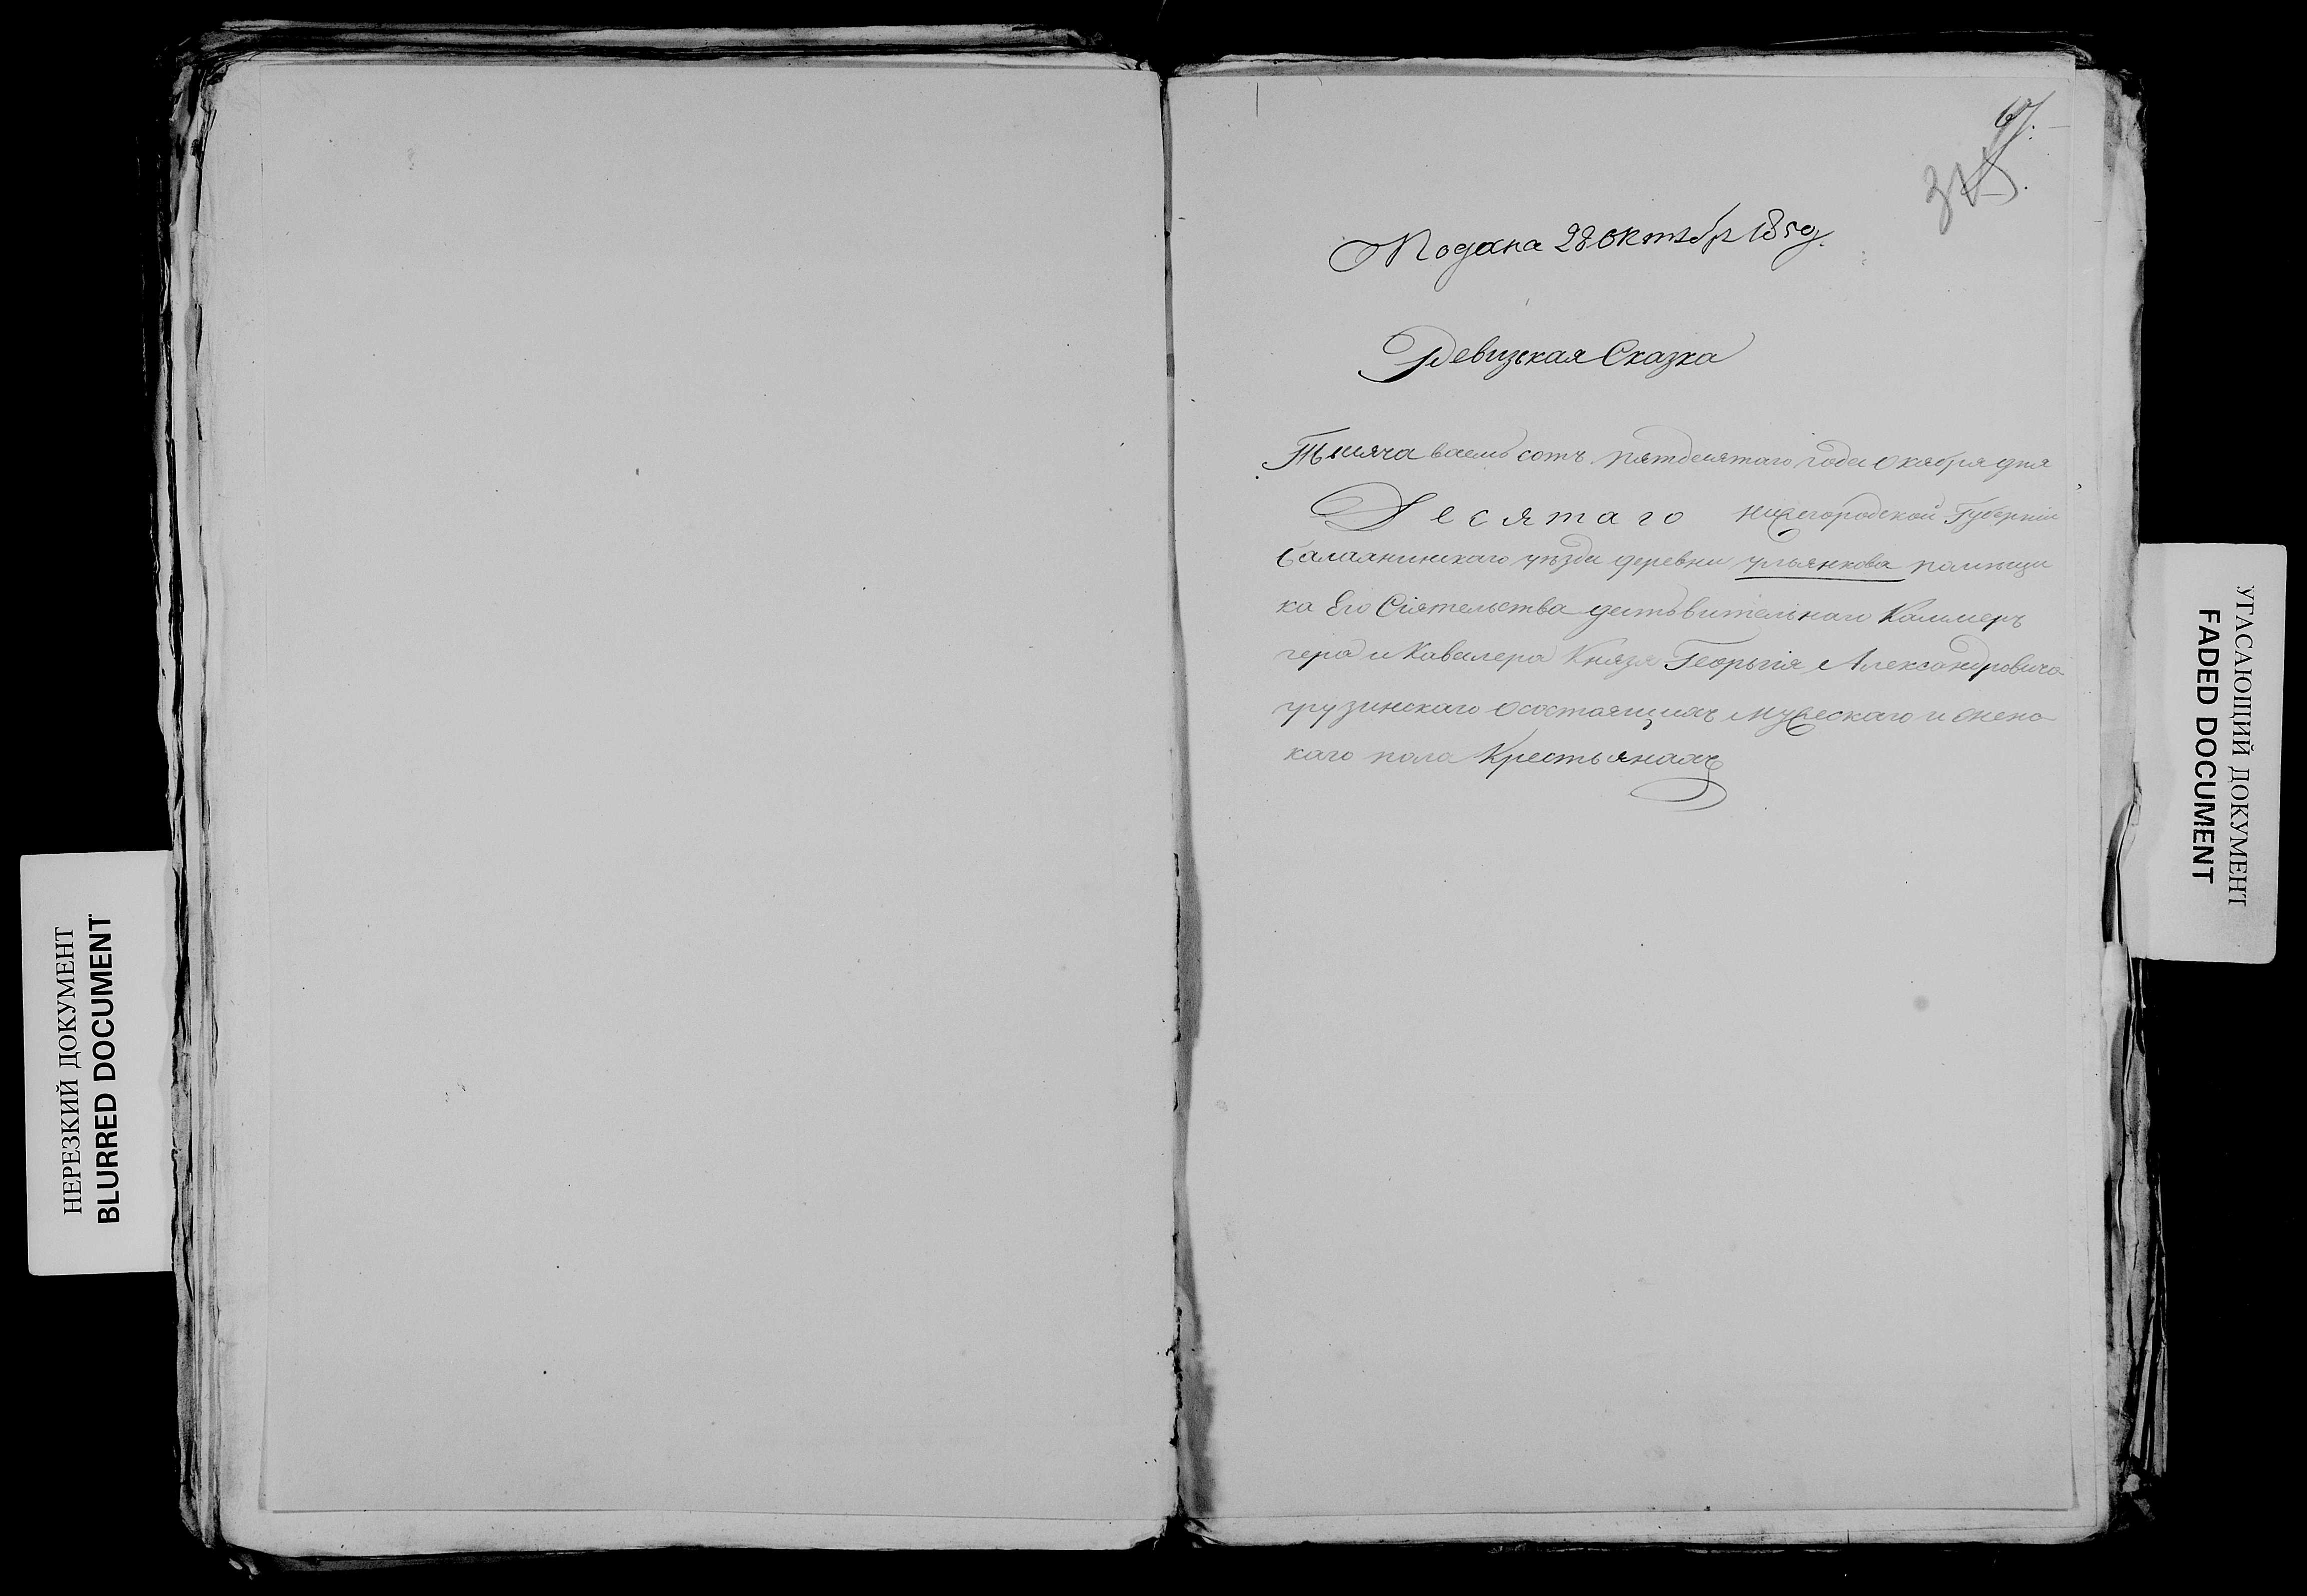 НЕРЕЗКИЙ ДОКУМЕНТ
BLURRED DOCUMENT
67.
Подана 28 октябр 1850
Ревизская Сказка
Тысяча васемь сотъ пятдесятаго года Октября дня
Десятаго Нижегородской Губерніи
Балахнинскаго уѣзда деревни Ульянкова помѣщи
ка Его Сіятельства действительнаго Каммеръ
гера и Кавалера Князя Георьгія Александровича
грузинскаго Осостоящихъ мужескаго и женс
каго пола Крестьянахъ
УГАСАЮЩИЙ ДОКУМЕНТ
FADED DOCUMENT